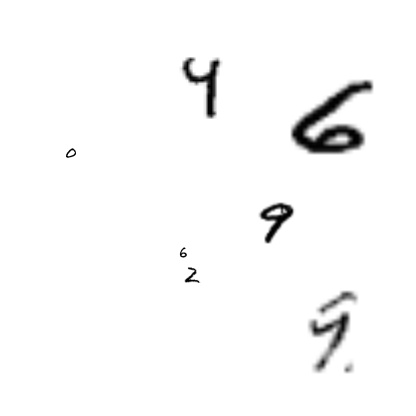 4
6
0
9
6
2